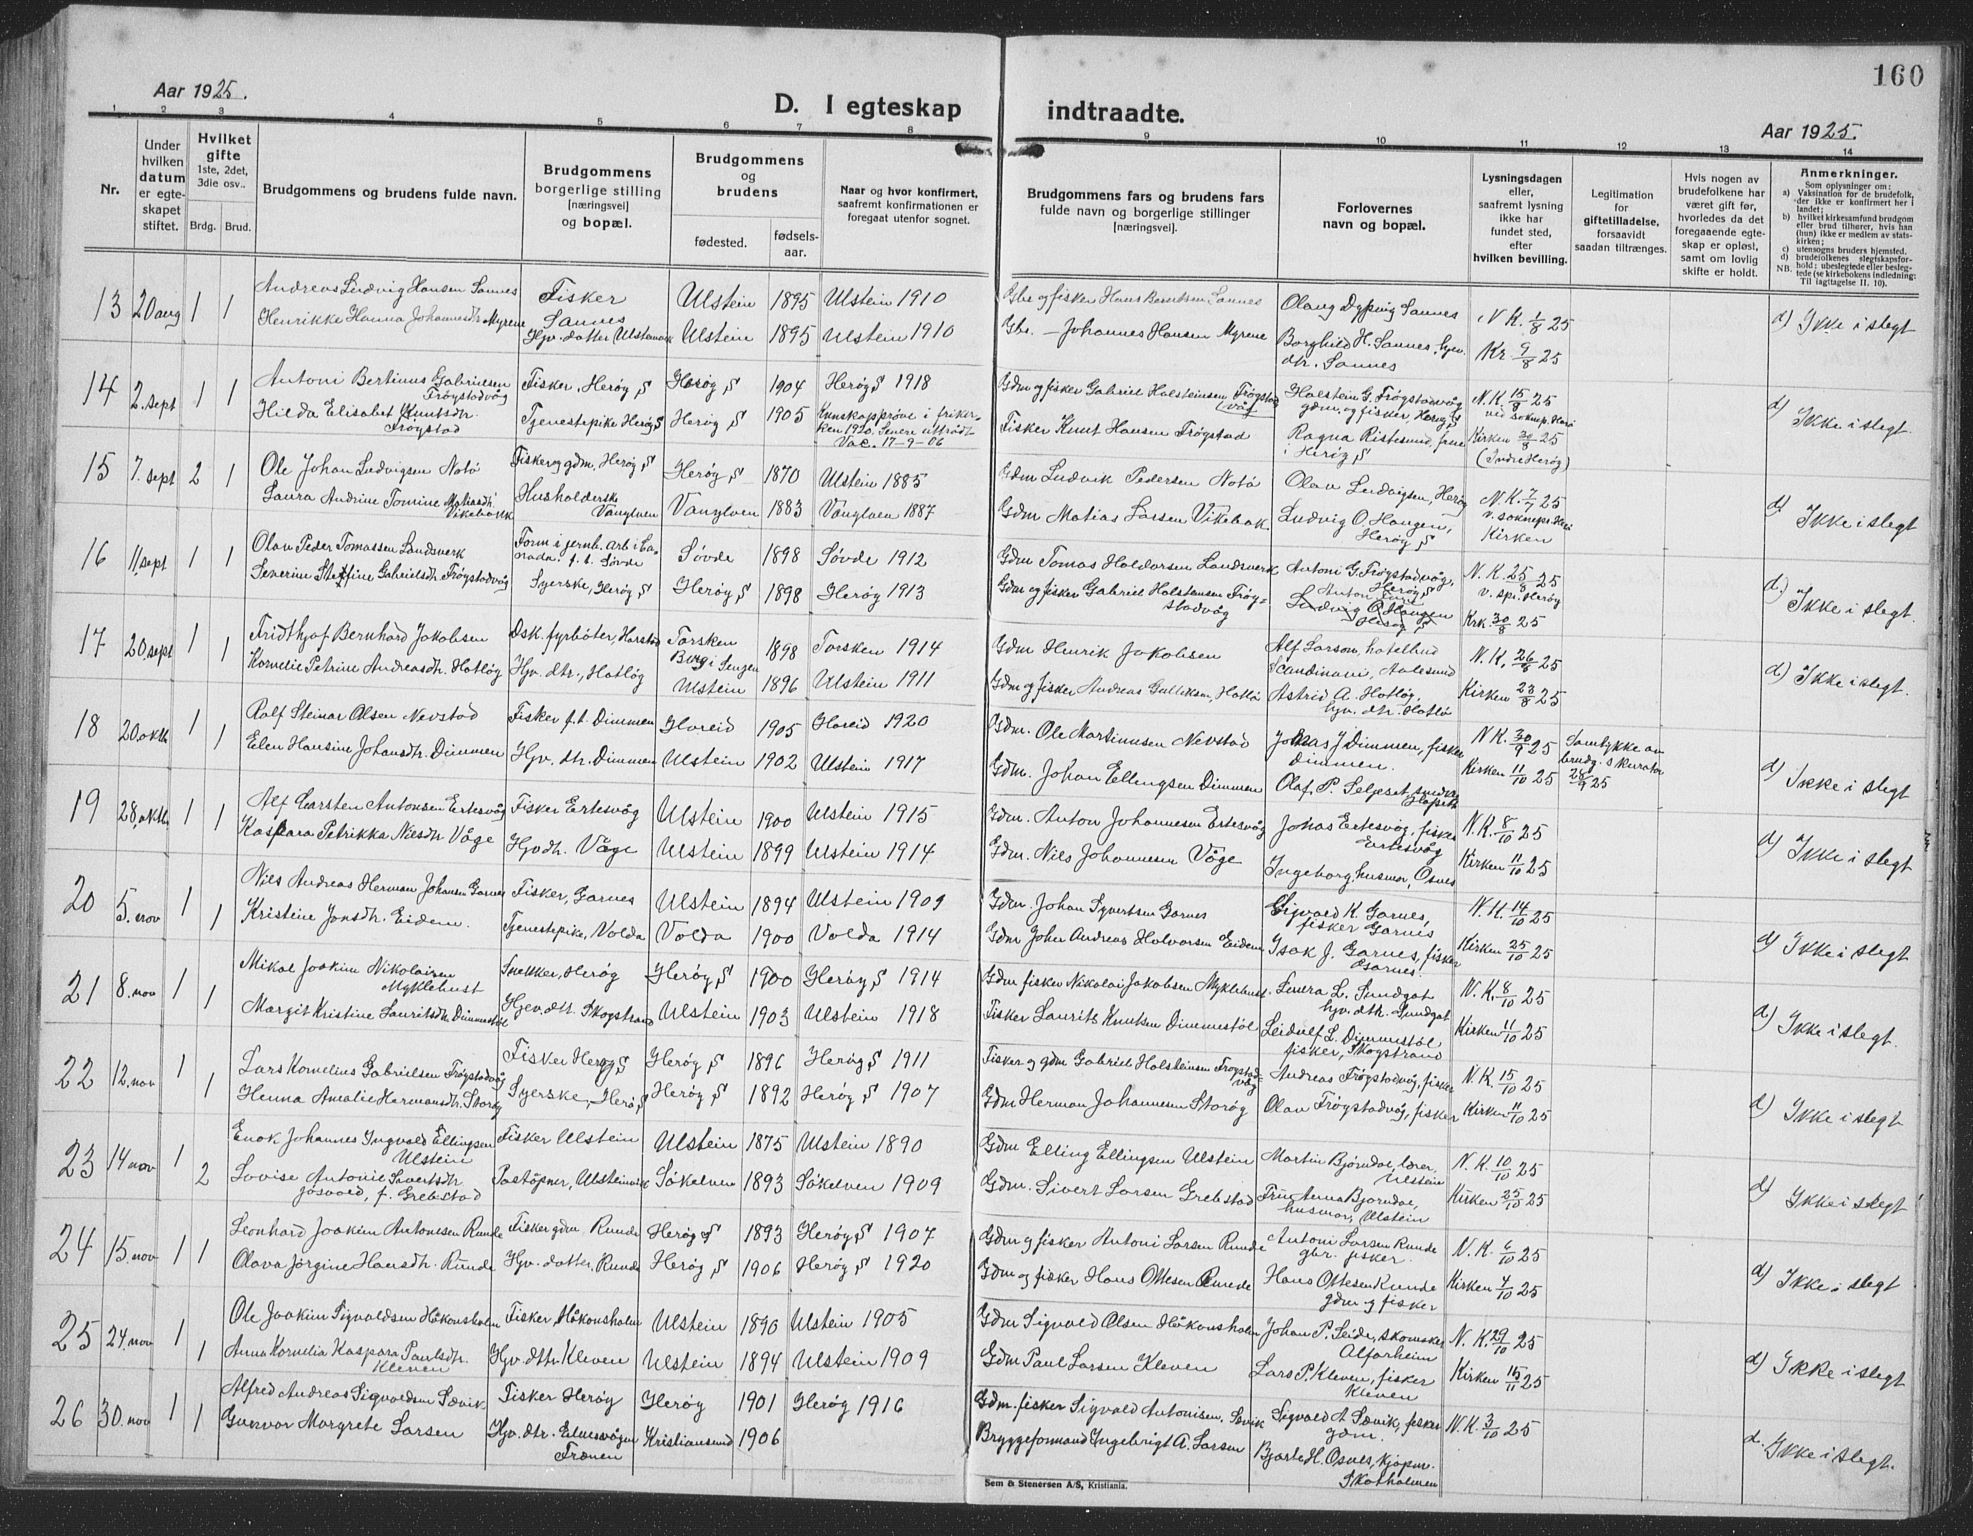 160
Aar 1925.
D. I egteskap indtraadte.
Aar 1925.
1 2 3 4 5 6 7 8 9 10 11 12 13 14
Nr.
Under hvilken datum er egteskapet stiftet.
Hvilket gifte 1ste, 2det, 3die osv..
Brdg. Brud.
Brudgommens og brudens fulde navn.
Brudgommens borgerlige stilling [næringsvei] og bopæl.
Brudgommens og brudens
fødested. fødsels-aar.
Naar og hvor konfirmert, saafremt konfirmationen er foregaat utenfor sognet.
Brudgommens fars og brudens fars fulde navn og borgerlige stillinger [næringsvei].
Forlovernes navn og bopæl.
Lysningsdagen eller, saafremt lysning ikke har fundet sted, efter hvilken bevilling.
Legitimation for giftetilladelse, forsaavidt saadan tiltrænges.
Hvis nogen av brudefolkene har været gift før, hvorledes da det foregaaende egteskap er opløst, samt om lovlig skifte er holdt.
Anmerkninger.
Som oplysninger om:
a) Vaksination for de brudefolk, der ikke er konfirmert her i landet;
b) hvilket kirkesamfund brudgom eller brud tilhører, hvis han (hun) ikke er medlem av statskirken;
c) utensogns bruders hjemsted.
d) brudefolkenes slegtskapsforhold: ubeslegtede eller beslegtede (se kirkebokens indledning: Til iagttagelse II. 10).
NB.
13 20 aug 1 1 Andreas Ludvig Hansen Sannes Fisker Sannes Ulstein 1895 Ulstein 1910 Gbr og fisker Hans Berntsen Sannes Olaug Dyping Sannes N.K. 1/8 25 d) Ikke i slegt
Henrikke Hanna Johannesdtr Myrene Hjv. datter Ulsteinvik Ulstein 1895 Ulstein 1910 Gbr. — Johannes Hansen Myrene Borghild H. Sannes, hjv. dtr. Sannes Kr. 9/8 25
14 2. sept 1 1 Antoni Bertinus Gabrielsen Frøystadvåg Fisker, Herøy S Herøy S 1904 Herøy S 1918 Gdm og fisker Gabriel Holsteinsen Frøystadvåg Holstein G. Frøystadvåg gdm. og fisker, Herøy S N.K. 15/8 25 ved sokнepr. Herø d) Ikke i slegt.
Hilda Elisabet Knutsdtr. Frøystad Tjenestepike Herøy S Herøy S 1905 Kunskapsprøve i frikirken 1920. Senere uttrådt Vac. 17-9-06 Fisker Knut Hansen Frøystad Ragna Ristesund, frue i Herøy S Kirken 30/8 25 (Indre Herøy)
15 7. sept 2 1 Ole Johan Ludvigsen Notø Fisker og gdm, Herøy S Herøy S 1870 Ulstein 1885 Gdm Ludvik Pedersen Notø Olav Ludvigsen, Herøy N.K. 7/7 25 v. soknepr. Herø d) Ikke i slegt
Laura Andrine Tomine Matiasdtr. Vikebakk Husholderske Vanylven Vanylven 1883 Vanylven 1887 Gdm Matias Larsen Vikebak Ludvig O. Haugen, Herøy S Kirken
16 11. sept 1 1 Olav Peder Tomassen Landsverk Form. i jernb. arb i Canada. f.t. Søvde Søvde 1898 Søvde 1912 Gdm Tomas Haldorsen Landsverk Antoni G. Frøystadvåg, Herøy S N.K. 25/8 25 v. spr. Herøy d) Ikke i slegt.
Severine Steffine Gabrielsdtr. Frøystadvåg Syerske, Herøy S Herøy S 1898 Herøy 1913 Gdm og fisker Gabriel Holstensen Frøystadvåg Ludvig O. Haugen Herøy S Krk. 30/8 25
17 20. sept 1 1 Fridthjof Bernhard Jakobsen Dsk. fyrbøter, Harstad Torsken Berg i Sengen 1898 Torsken 1914 Gdm Henrik Jakobsen Alf Larsen, hotelbud Scandinavi, Aalesund N.K. 26/8 25 d) Ikke i slegt.
Kornelie Petrine Andreasdtr. Hatløy Hjv. dtr., Hatløy Ulstein 1896 Ulstein 1911 Gdm og fisker Andreas Gulleksen, Hatlø Astrid A. Hatløy, hjv. dtr. Hatlø Kirken 23/8 25
18 20. oktb 1 1 Rolf Steinar Olsen Nevstad Fisker f.t. Dimmen Hareid 1905 Hareid 1920 Gdm. Ole Martinusen Nevstad Johas J Dimmen, fisker Dimmen. N.K. 30/9 25 Samtykke av brudg.s kurator 28/9 25 d) Ikke i slegt
Elen Hansine Johansdtr. Dimmen Hjv. dtr. Dimmen Ulstein 1902 Ulstein 1917 Gdm. Johan Ellingsen Dimmen Olaf P. Seljeset Kirken 11/10 25
19 28. oktb 1 1 Alf Carsten Antonsen Ertesvåg Fisker Ertesvåg Ulstein 1900 Ulstein 1915 Gdm. Anton Johannesen Ertesvåg Johas Ertesvåg, fisker Ertesvåg N.K. 8/10 25 d) Ikke i slegt
Kaspara Petrikka Nilsdtr Våge Hjvdtr. Våge Ulstein 1899 Ulstein 1914 Gdm. Nils Johannesen Våge Ingeborg, husmor, Osnes Kirken 11/10 25
20 5. nov 1 1 Nils Andreas Herman Johansen Garnes Fisker, Garnes Ulstein 1894 Ulstein 1909 Gdm. Johan Syvertsen Garnes Sigvald K. Garnes, fisker Garnes N.K. 14/10 25 d) Ikke i slegt
Kristine Jonsdtr. Eidem. Tjenestepike, Volda Volda 1900 Volda 1914 Gdm John Andreas Halvorsen Eidem Isak J. Garnes, fisker Garnes. Kirken 25/10 25
21 8. nov 1 1 Mikal Joakim Nikolaisen Myklebust Snekker, Herøy Herøy S 1900 Herøy S 1914 Gdm fisker Nikolai Jakobsen Myklebust. Lovera L. Sundgot hjv. dtr. Sundgot N.K. 8/10 25 d) Ikke i slegt.
Margit Kristine Lauritsdtr Dimmestøl Hjev. dtr. Skogstrand Ulstein 1903 Ulstein 1918 Fisker Laurits Knutsen Dimmestøl Leidulf L. Dimmestøl fisker, Skogstrand Kirken 11/10 25
22 12. nov 1 1 Lars Kornelius Gabrielsen Frøystadvåg Fisker Herøy S Herøy S 1896 Herøy S 1911 Fisker og gdm Gabriel Holsteinsen Frøystadvåg Andreas Frøystadvåg, fisker N.K. 15/10 25 d) Ikke i slegt
Henna Amalie Hermansdtr. Storøy Syerske, Herøy S Herøy S 1892 Herøy S 1907 Gdm Herman Johannesen Storøy Olav Frøystadvåg, fisker Kirken 11/10 25
23 14 nov 1 2 Enok Johannes Ingvald Ellingsen Ulstein Fisker Ulstein Ulstein 1875 Ulstein 1890 Gdm Elling Ellingsen Ulstein Martin Bjørndal, lærer. Ulstein N.K. 10/10 25 d) Ikke i slegt
Lovise Antonie Sivertsdtr Jøsvold, f. Grebstad Poståpner, Ulsteinvik Søkelven 1893 Søkelven 1909 Gdm. Sivert Larsen Grebstad Fru Anna Bjørndal, husmor, Ulstein Kirken 25/10 25
24 15. nov 1 1 Leonhard Joakim Antonisen Runde Fisker gdm Runde Herøy S 1893 Herøy S 1907 Gdm og fisker Antoni Larsen Runde Antoni Larsen Runde gbr. fisker. N.K. 6/10 25 d) Ikke i slegt
Olava Jørgine Hansdtr. Runde Hjv. datter, Runde Herøy S 1906 Herøy S 1920 Gdm og fisker Hans Ottesen Runde Hans Ottesen Runde gdm og fisker Kirken 4/10 25
25 24. nov 1 1 Ole Joakim Sigvaldsen Håkonsholm Fisker, Håkonsholm Ulstein 1890 Ulstein 1905 Gdm Sigvald Olsen Håkonsholm Johan P. Leide, skomaker Alfarheim N.K. 29/10 25 d) Ikke i slegt
Anna Kornelia Kaspara Paulsdtr. Kleven Hjv. dttr Kleven Ulstein 1894 Ulstein 1909 Gdm Paul Larsen Kleven Lars P. Kleven, fisker Kleven Kirken 15/11 25
26 30. nov 1 1 Alfred Andreas Sigvaldsen Sævik Fisker Herøy Herøy 1901 Herøy 1916 Gdm. fisker Sigvald Antonisen. Sævik Sigvald A. Sævik, fisker gdm. N.K. 3/10 25 d. Ikke i slegt.
Gunvor Margrete Larsen Hjv. dtr. Elnesvågen Frænen Kristiansund 1906 Bryggeformand Ingebrigt A. Larsen Bjarte H. Osnes, kjøpm. Skotholmen
Sem & Stenersen A/S, Kristiania.